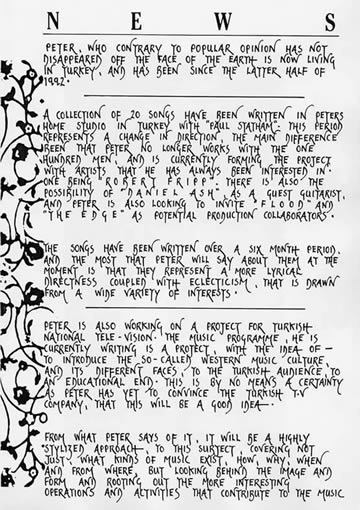 NEWS
PETER, WHO CONTRARY TO POPULAR OPINION HAS NOT
DISAPPEARED OFF THE FACE OF THE EARTH IS NOW LIVING
IN TURKEY, AND HAS BEEN SINCE THE LATTER HALF OF
1992.
A COLLECTION OF 20 SONGS HAVE BEEN WRITTEN IN PETERS
HOME STUDIO IN TURKEY WITH PAUL STATHAM. THIS PERIOD
REPRESENTS A CHANGE IN DIRECTION, THE MAIN DIFFERENCE
BEEN THAT PETER NO LONGER WORKS WITH THE ONE
HUNDRED MEN, AND IS CURRENTLY FORMING THE PROJECT
WITH ARTISTS THAT HE HAS ALWAYS BEEN INTERESTED IN.
ONE BEING "ROBERT FRIPP". THERE IS ALSO THE
POSSIBILITY OF "DANIEL ASH", AS A GUEST GUITARIST,
AND PETER IS ALSO LOOKING TO INVITE "FLOOD" AND
"THE EDGE" AS POTENTIAL PRODUCTION COLLABORATORS.
THE SONGS HAVE BEEN WRITTEN OVER A SIX MONTH PERIOD,
AND THE MOST THAT PETER WILL SAY ABOUT THEM AT THE
MOMENT IS THAT THEY REPRESENT A MORE LYRICAL
DIRECTNESS COUPLED WITH ECLECTICISM, THAT IS DRAWN
FROM A WIDE VARIETY OF INTERESTS.
PETER IS ALSO WORKING ON A PROJECT FOR TURKISH
NATIONAL TELE-VISION. THE MUSIC PROGRAMME, HE IS
CURRENTLY WRITING IS A PROJECT, WITH THE IDEA OF —
TO INTRODUCE THE SO-CALLED WESTERN MUSIC CULTURE,
AND ITS DIFFERENT FACES, TO THE TURKISH AUDIENCE, TO
AN EDUCATIONAL END. THIS IS BY NO MEANS A CERTAINTY
AS PETER HAS YET TO CONVINCE THE TURKISH T.V
COMPANY, THAT THIS WILL BE A GOOD IDEA.
FROM WHAT PETER SAYS OF IT, IT WILL BE A HIGHLY
STYLIZED APPROACH, TO THIS SUBJECT, COVERING NOT
JUST, WHAT KINDS OF MUSIC EXIST, HOW, WHY, WHEN
AND FROM WHERE, BUT LOOKING BEHIND THE IMAGE AND
FORM AND ROOTING OUT THE MORE INTERESTING
OPERATIONS AND ACTIVITIES THAT CONTRIBUTE TO THE MUSIC